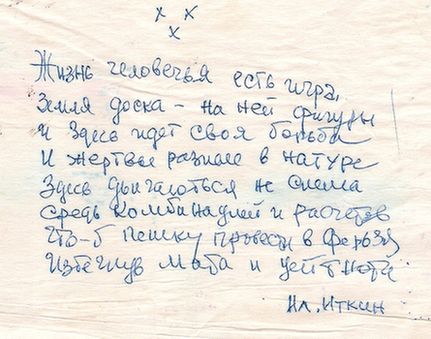 x x
x
Жизнь человечья есть игра,
Земля доска – на ней фигуры
И здесь идет своя борьба
И жертвы разные в натуре
Здесь двигаються не спеша
Средь комбинаций и расчетов
Что-б пешку провести в ферзя
Избегнув мата и цейтнота
Ил. Иткин